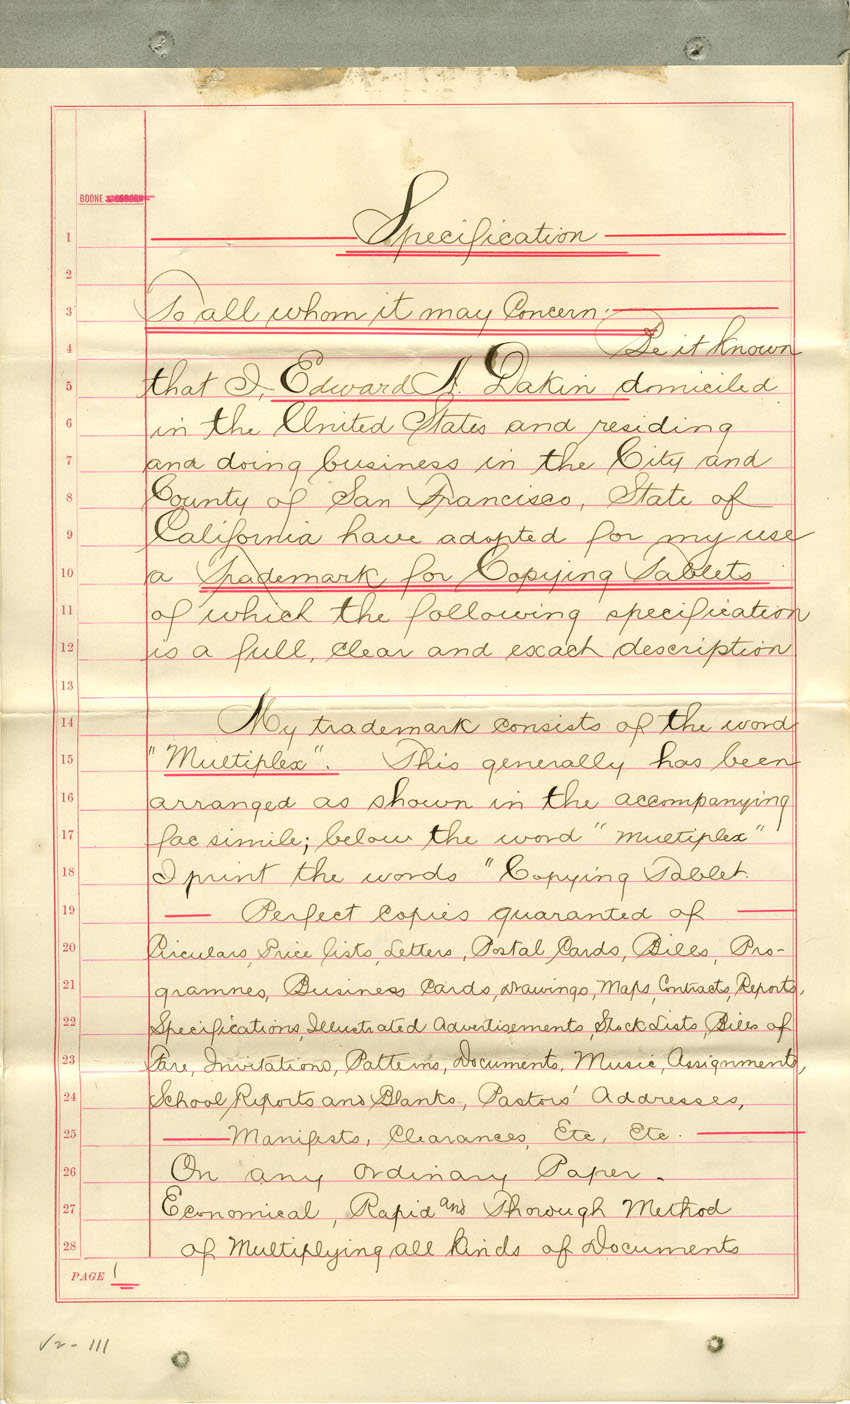 BOONE & OSBORN
1 Specification
2
3 To all whom it may Concern:
4 Be it known
5 that I, Edward H. Dakin domiciled
6 in the United States and residing
7 and doing business in the City and
8 County of San Francisco, State of
9 California have adopted for my use
10 a Trademark for Copying Tablets
11 of which the following specification
12 is a full, clear and exact description
13
14 My trademark consists of the word
15 "Multiplex". This generally has been
16 arranged as shown in the accompanying
17 fac simile; below the word "multiplex"
18 I print the words "Copying Tablet.
19 — Perfect copies guaranted of —
20 Circulars, Price lists, Letters, Postal Cards, Bills, Pro-
21 grammes, Business Cards, Drawings, Maps, Contracts, Reports,
22 Specifications, Illustrated Advertisements, Stock Lists, Bills of
23 Fare, Invitations, Patterns, Documents, Music, Assignments,
24 School Reports and Blanks, Pastors' Addresses,
25 — Manifests, Clearances, Etc, Etc. —
26 On any ordinary Paper.
27 Economical, Rapid and Thorough Method
28 of Multiplying all kinds of Documents
PAGE 1
√2-111